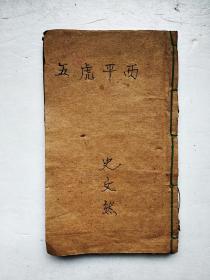 五虎平西
史文